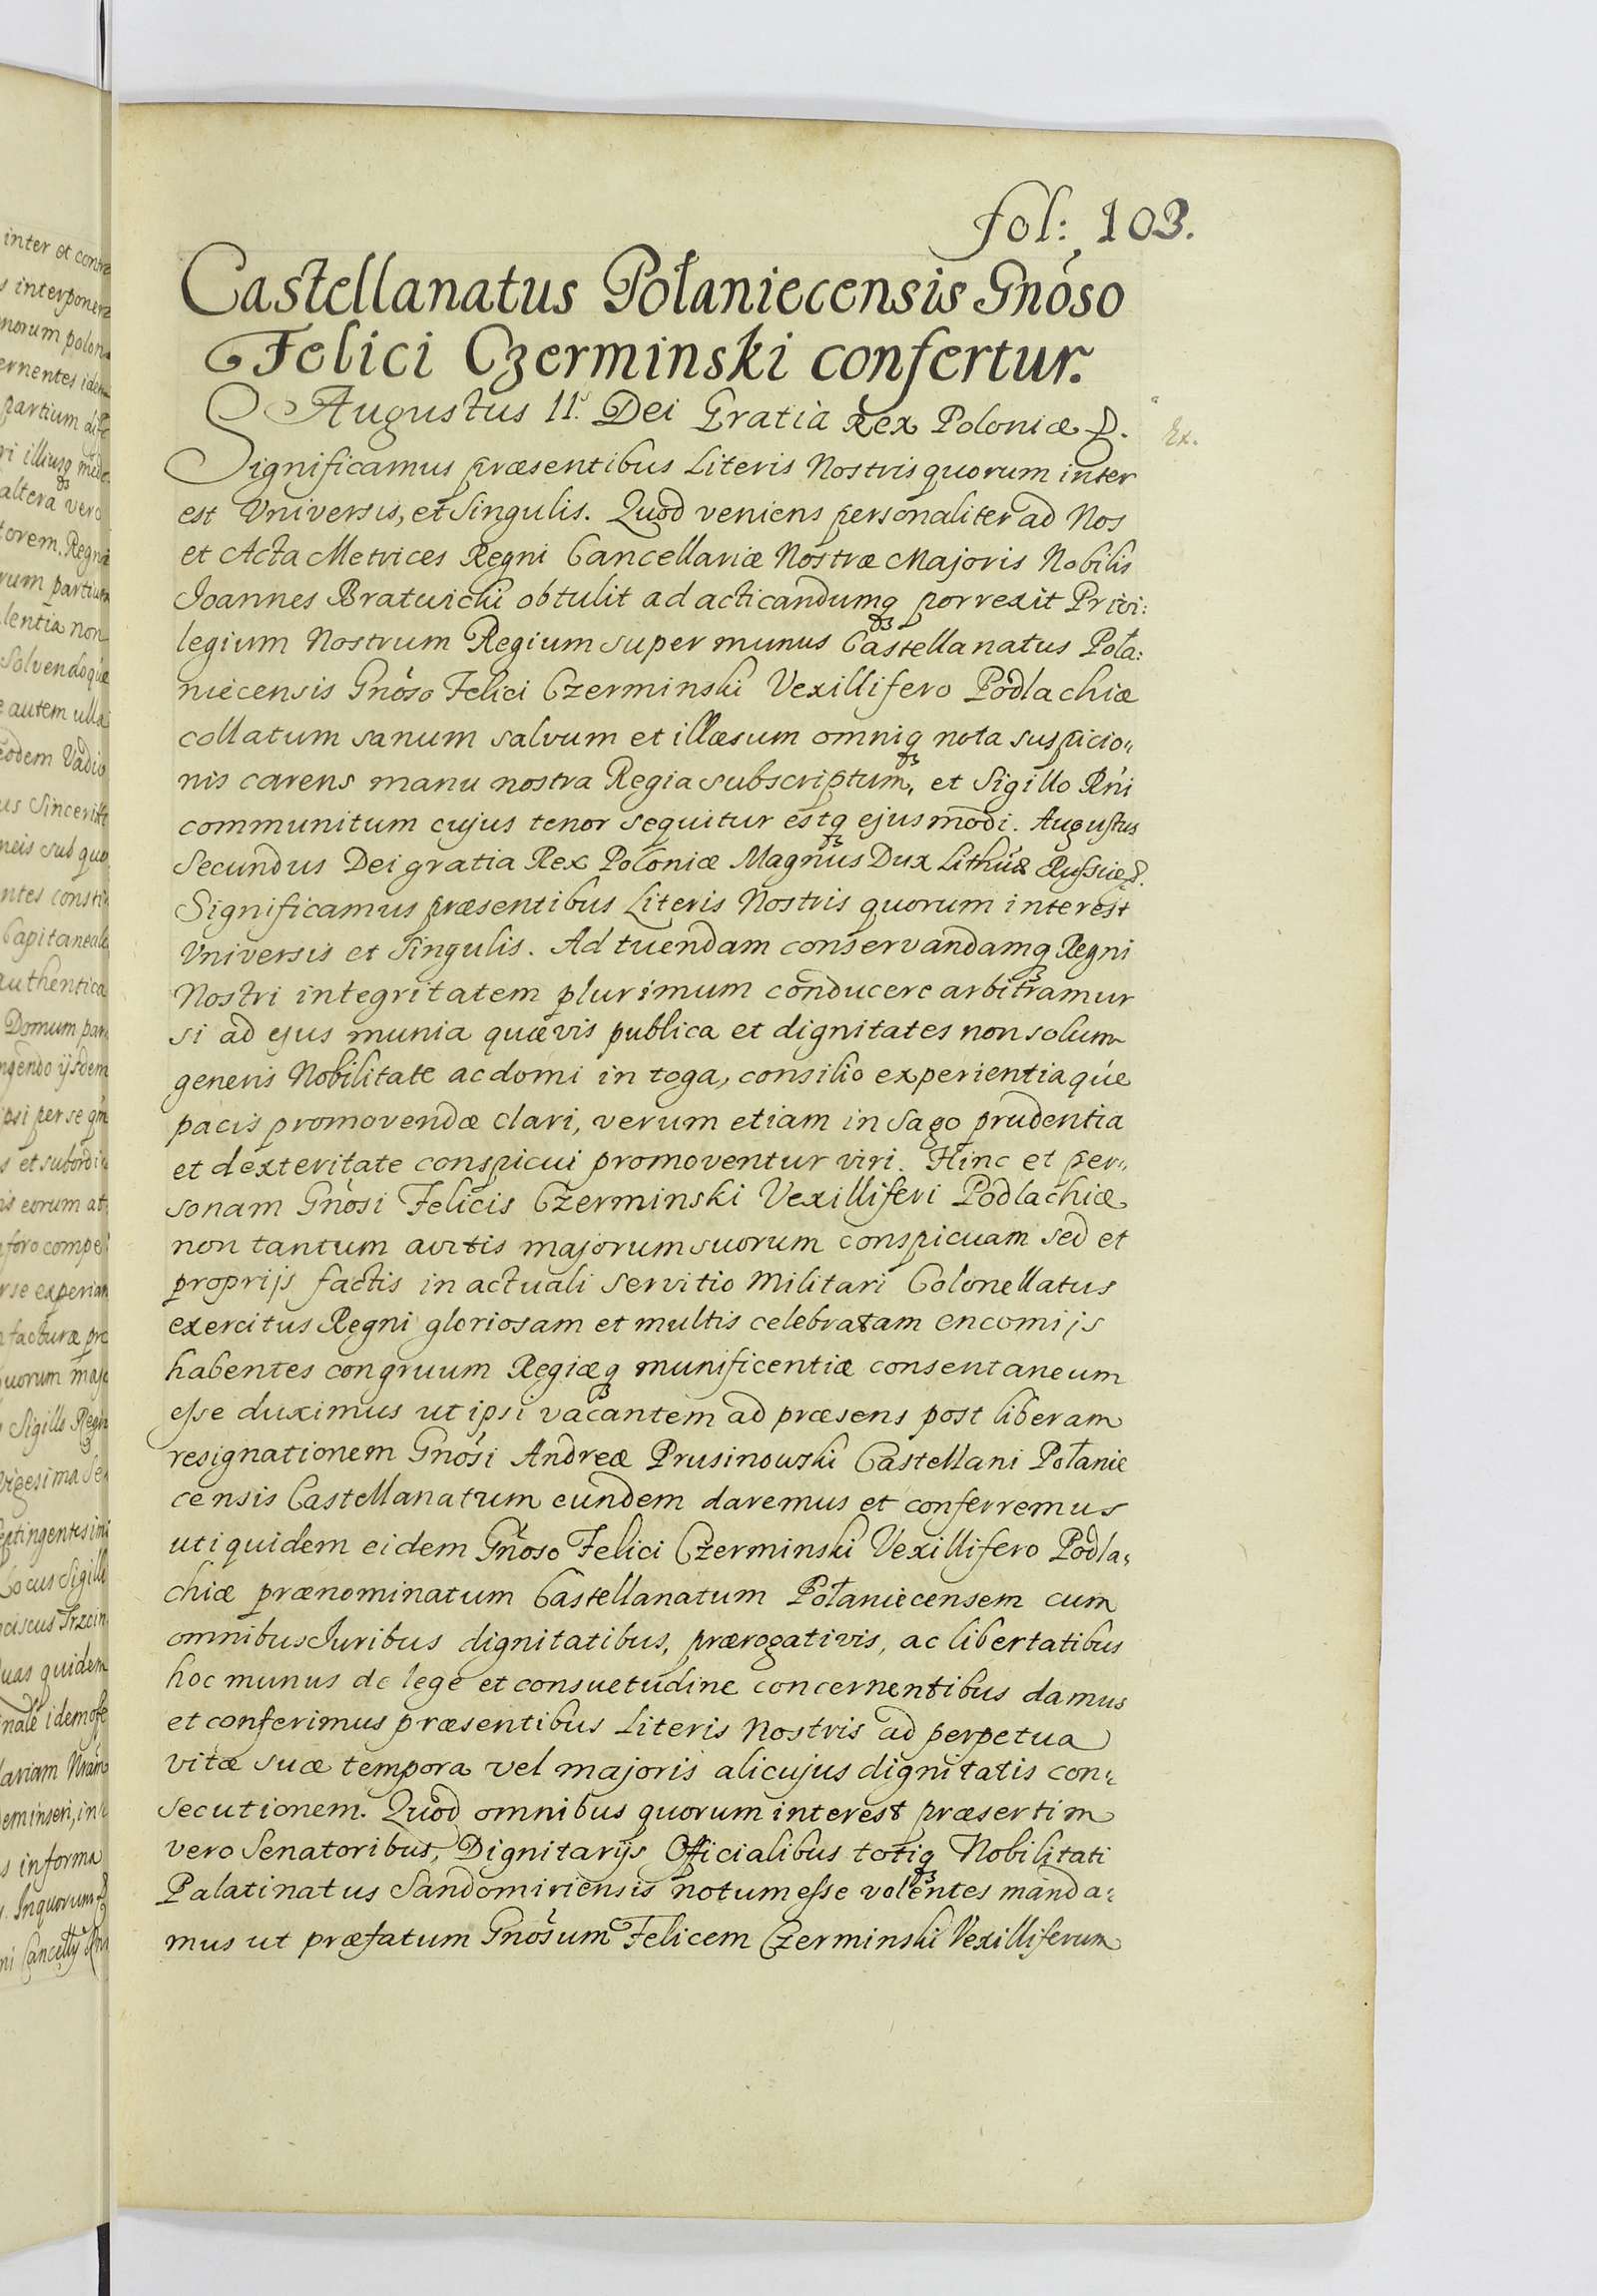 fol: 103.
Castellanatus Połaniecensis Gnoso
Felici Czerminski confertur.
Augustus II. Dei Gratia Rex Poloniæ &.
Ex.
Significamus præsentibus Literis Nostris quorum inter
est Universis, et Singulis. Quod veniens personaliter ad Nos
et Acta Metrices Regni Cancellariæ Nostræ Majoris Nobilis
Joannes Bratwichi obtulit ad acticandumq₃ porrexit Privi:
legium Nostrum Regium super munus Castellanatus Poła:
niecensis Gnoso Felici Czerminski Vexillifero Podlachiæ
collatum sanum salvum et illæsum omniq₃ nota suspicio„
nis carens manu nostra Regia subscriptum, et Sigillo Rni
communitum cujus tenor sequitur estq₃ ejusmodi. Augustus
Secundus Dei gratia Rex Poloniæ Magnus Dux Lithuæ Russiæ &.
Significamus præsentibus Literis Nostris quorum interest
Universis et Singulis. Ad tuendam conservandamq₃ Regni
Nostri integritatem plurimum conducere arbitramur
si ad ejus munia quævis publica et dignitates non solum
generis Nobilitate ac domi in toga, consilio experientiaque
pacis promovendæ clari, verum etiam in Sago prudentia
et dexteritate conspicui promoventur viri. Hinc et per„
sonam Gnosi Felicis Czerminski Vexilliferi Podlachiæ
non tantum avitis majorum suorum conspicuam sed et
proprijs factis in actuali servitio Militari Colonellatus
exercitus Regni gloriosam et multis celebratam encomijs
habentes congruum Regiæq₃ munificentiæ consentaneum
esse duximus ut ipsi vacantem ad præsens post liberam
resignationem Gnosi Andreæ Prusinowski Castellani Połanie
censis Castellanatum eundem daremus et conferremus
uti quidem eidem Gnoso Felici Czerminski Vexillifero Podla„
chiæ prænominatum Castellanatum Połaniecensem cum
omnibus Juribus dignitatibus, prærogativis, ac libertatibus
hoc munus de lege et consuetudine concernentibus damus
et conferimus præsentibus Literis Nostris ad perpetua
vitæ suæ tempora vel majoris alicujus dignitatis con„
secutionem. Quod omnibus quorum interest præsertim
vero Senatoribus, Dignitarijs Officialibus totiq₃ Nobilitati
Palatinatus Sandomiriensis notum esse volentes manda„
mus ut præfatum Gnosum Felicem Czerminski Vexilliferum